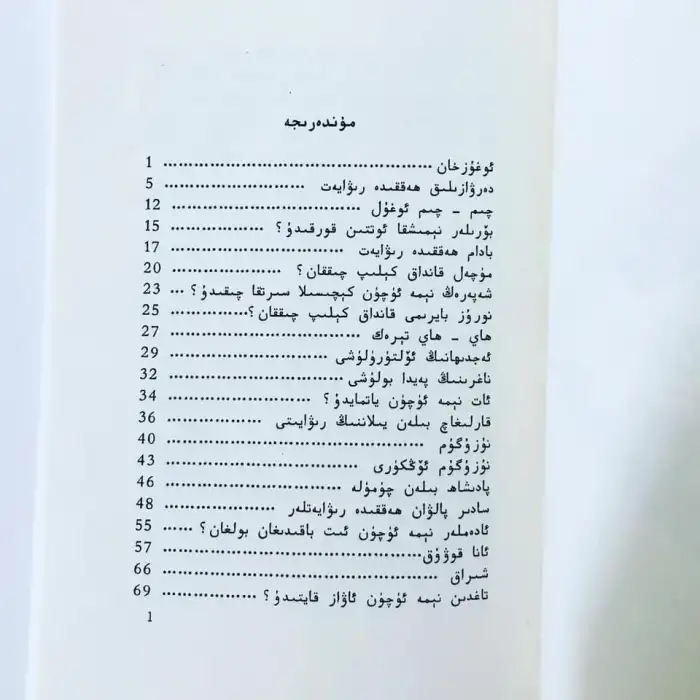 مۇندەرىجە
ئوغۇزخان ................................................ 1
دەرۋازىلىق ھەققىدە رىۋايەت ......................... 5
چىم - چىم ئوغۇل .................................. 12
بۆرىلەر نېمىشقا ئوتتىن قورقىدۇ؟ ................. 15
بادام ھەققىدە رىۋايەت ............................... 17
مۈچەل قانداق كېلىپ چىققان؟ .................... 20
شەپەرەڭ نېمە ئۈچۈن كېچىسىلا سىرتقا چىقىدۇ؟ ... 23
نورۇز بايرىمى قانداق كېلىپ چىققان؟ .............. 25
ھاي - ھاي تېرەك ................................... 27
ئەجدىھانىڭ ئۆلتۈرۈلۈشى ............................ 29
ناغرىنىڭ پەيدا بولۇشى ............................... 32
ئات نېمە ئۈچۈن ياتمايدۇ؟ ......................... 34
قارلىغاچ بىلەن يىلاننىڭ رىۋايىتى ................. 36
نۇزۇگۇم .............................................. 40
نۇزۇگۇم ئۆڭكۈرى .................................. 43
پادىشاھ بىلەن چۈمۈلە ............................... 46
سادىر پالۋان ھەققىدە رىۋايەتلەر .................... 48
ئادەملەر نېمە ئۈچۈن ئىت باقىدىغان بولغان؟ ...... 55
ئانا قوۋۇق .............................................. 57
شىراق ................................................. 66
تاغدىن نېمە ئۈچۈن ئاۋاز قايتىدۇ؟ ................. 69
1